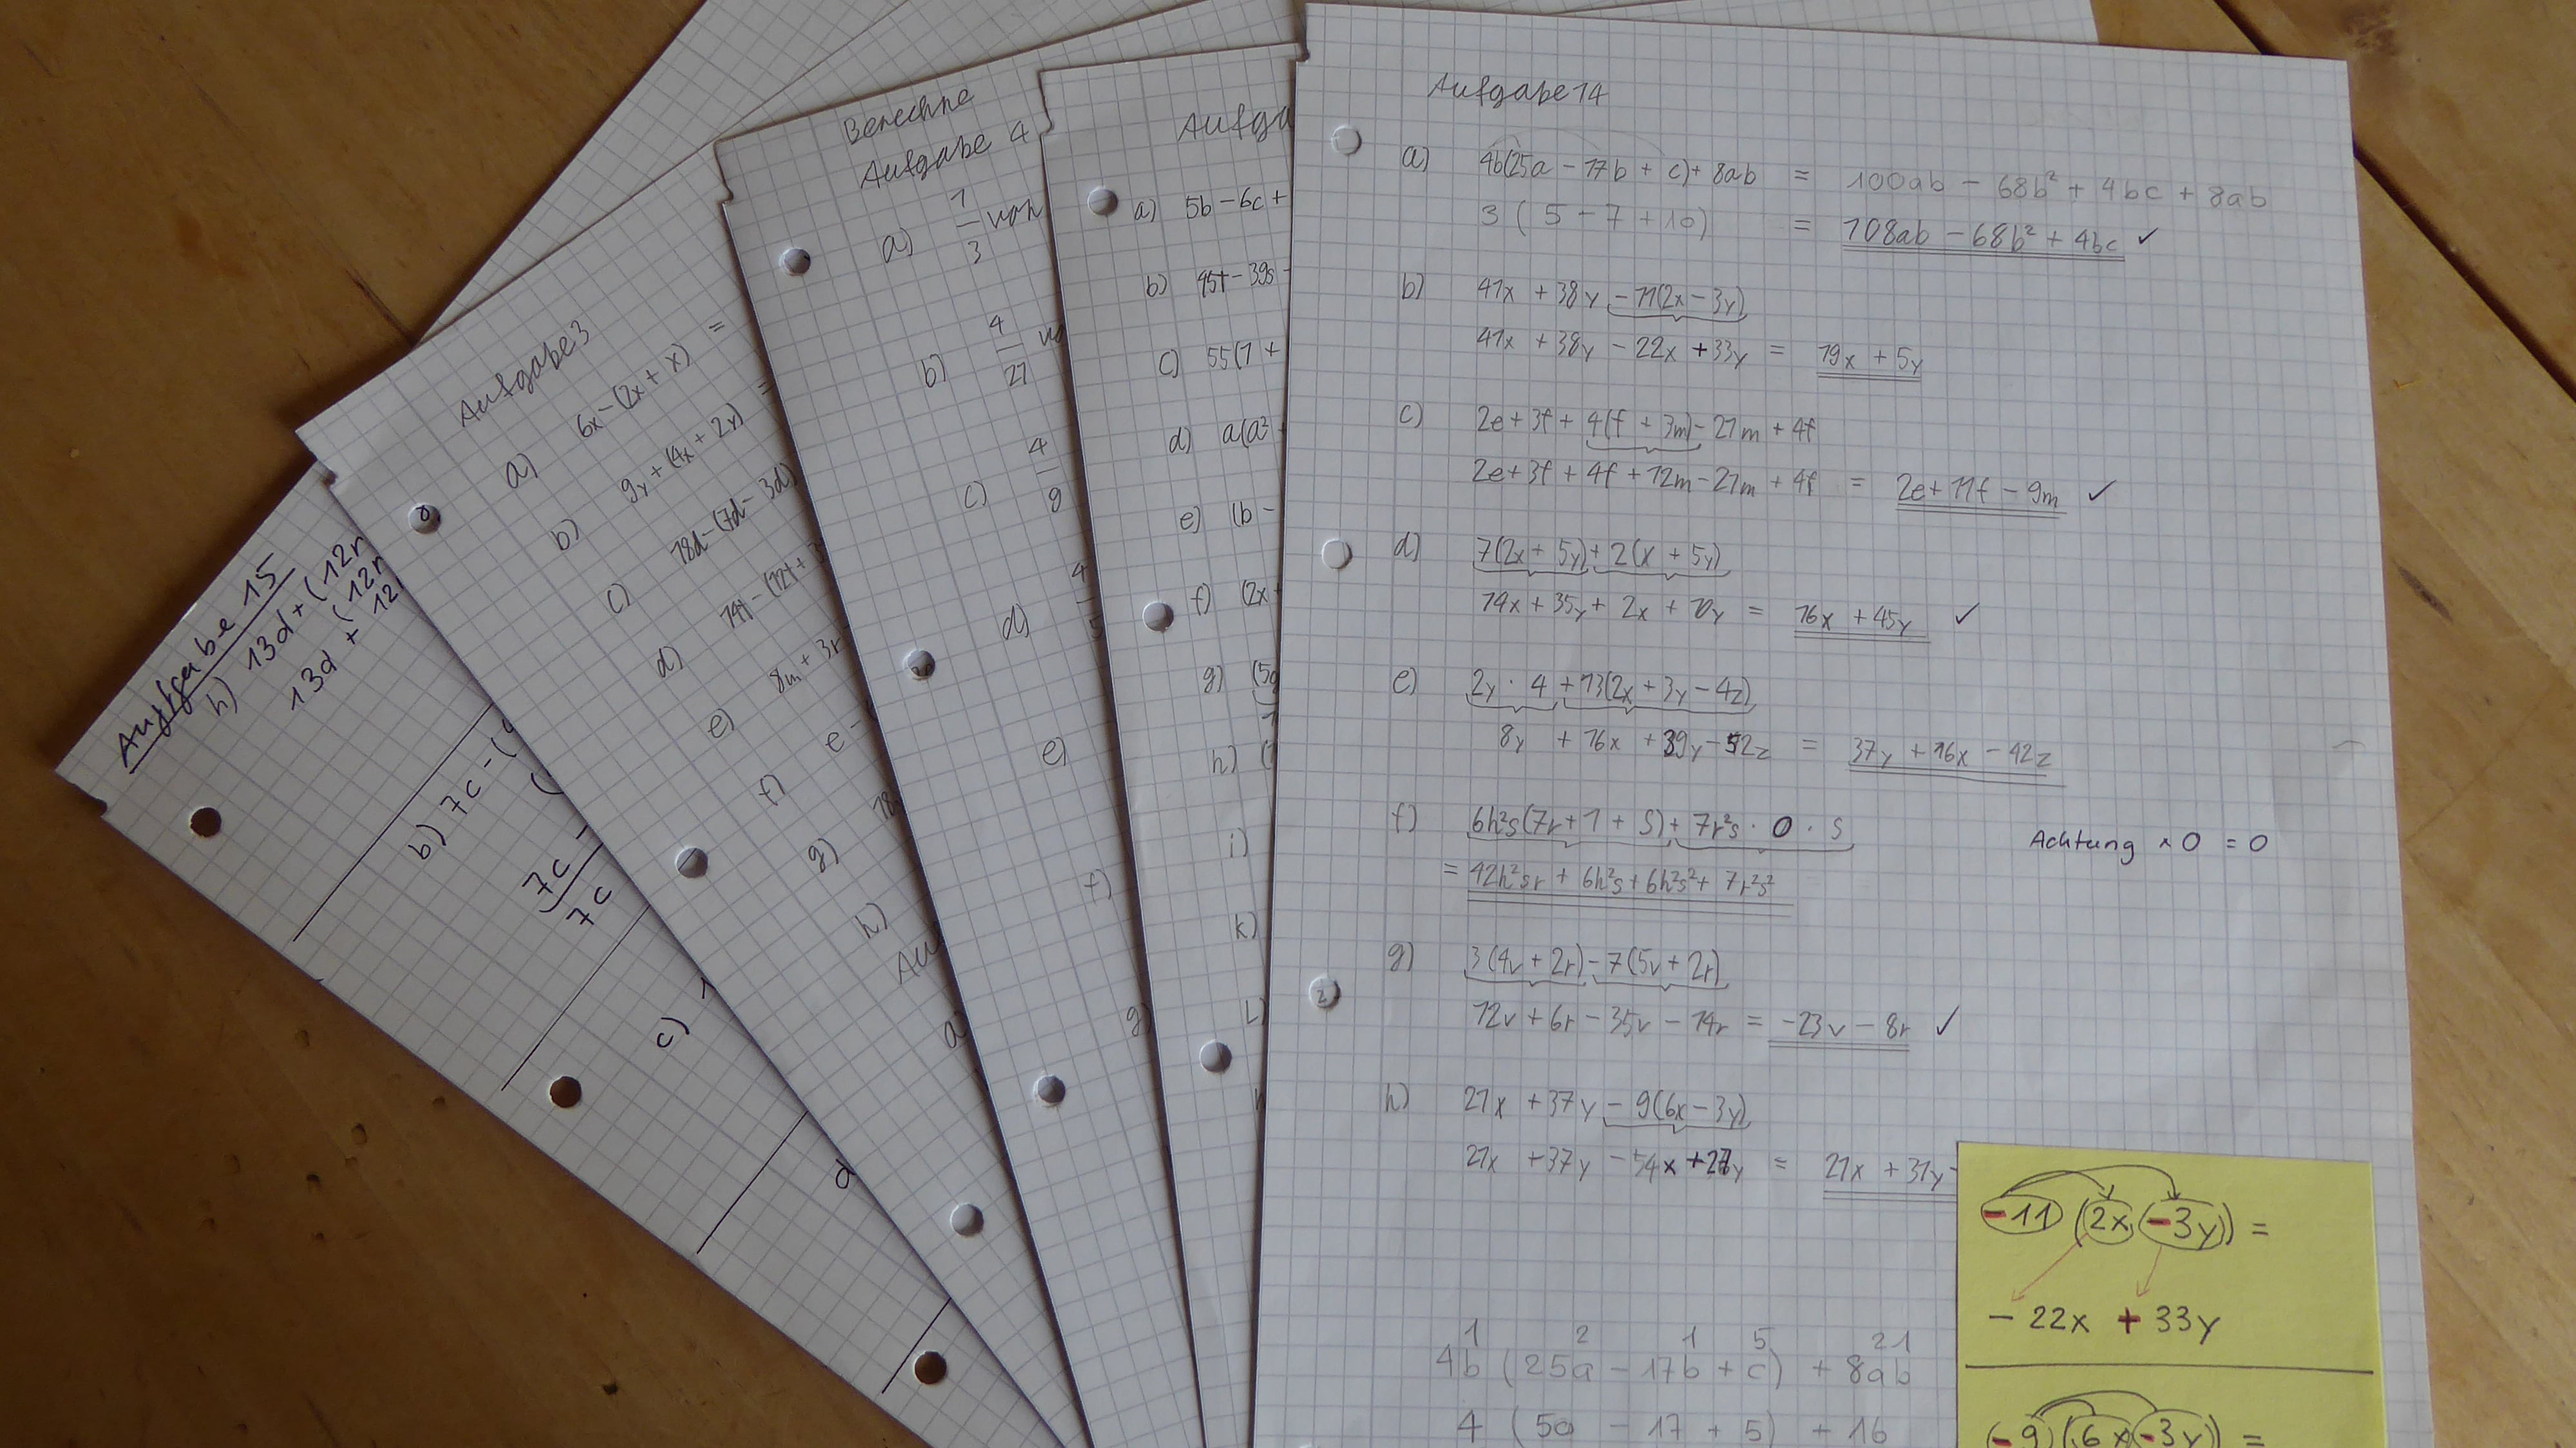 Aufgabe 15
h) 13d + (12r
(12r
13d + 12
b) 7c - (
7c -
7c
c) 1
d
Aufgabe 3
a) 6x - (2x + x) =
b) 9y + (4x + 2y) =
c) 18d - (7d - 3d)
d) 14t - (12t + 3
e) 8m + 3r
f) e -
g) 18
h)
Au
a)
Berechne
Aufgabe 4
a) 1/3 von
b) 4/27 vo
c) 4/9
d) 4/5
e)
f)
g)
Aufga
a) 5b - 6c +
b) 45t - 39s -
c) 55(1 +
d) a(a²
e) (b -
f) (2x +
g) (5a
h) (
i)
k)
L)
Aufgabe 14
a) 4b(25a - 17b + c) + 8ab = 100ab - 68b² + 4bc + 8ab
3 ( 5 - 7 + 10) = 108ab - 68b² + 4bc ✓
b) 41x + 38y - 11(2x - 3y)
41x + 38y - 22x + 33y = 19x + 5y
c) 2e + 3f + 4(f + 3m) - 21m + 4f
2e + 3f + 4f + 12m - 21m + 4f = 2e + 11f - 9m ✓
d) 7(2x + 5y) + 2(x + 5y)
14x + 35y + 2x + 10y = 16x + 45y ✓
e) 2y · 4 + 13(2x + 3y - 4z)
8y + 16x + 39y - 52z = 37y + 16x - 42z
f) 6h²s(7r + 1 + s) + 7r²s · 0 · s
Achtung × 0 = 0
= 42h²sr + 6h²s + 6h²s² + 7r²s²
g) 3(4v + 2r) - 7(5v + 2r)
12v + 6r - 35v - 14r = -23v - 8r ✓
h) 21x + 37y - 9(6x - 3y)
21x + 37y - 54x + 27y = 21x + 31y -
1 2 1 5 21
4b (25a - 17b + c) + 8ab
4 (5a - 17 + 5) + 16
-11 (2x - 3y) =
- 22x + 33y
(-9) (6x - 3y) =